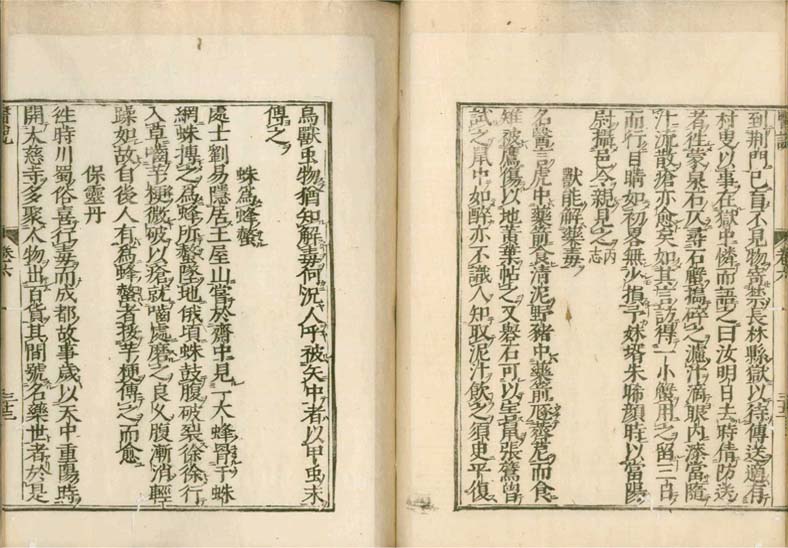 醫說
卷六
到荆門已盲不見物寄禁長林縣獄以待傳送適有
村叟以事在獄中憐而語之曰汝明日去時倩防送
者徃蒙泉石仄尋石蟹擣碎之濾汁滴眼內漆當隨
汁流散瘡亦愈矣如其言訪得一小蟹用之留三日
而行目睛如初畧無少損予妹壻朱晞顏時以當陽
尉攝邑令親見之 丙志
獸能解藥毒
名醫言虎中藥箭食清泥野豬中藥箭豗薺苨而食
雉被鷹傷以地黃葉帖之又礜石可以害鼠張鷟曾
試之鼠中如醉亦不識人知取泥汁飲之須臾平復
鳥獸虫物猶知解毒何況人乎被矢中者以甲虫末
傅之
蛛為蜂螫
處士劉易隱居王屋山嘗於齋中見一大蜂罥于蛛
網蛛搏之為蜂所螫墜地俄頃蛛鼓腹破裂徐徐行
入草嚙芋梗微破以瘡就嚙處磨之良久腹漸消輕
躁如故自後人有為蜂螫者挼芋梗傅之而愈
保靈丹
徃時川蜀俗喜行毒而成都故事歲以天中重陽時
開大慈寺多聚人物出百貨其間號名藥世者於是
醫說
卷六